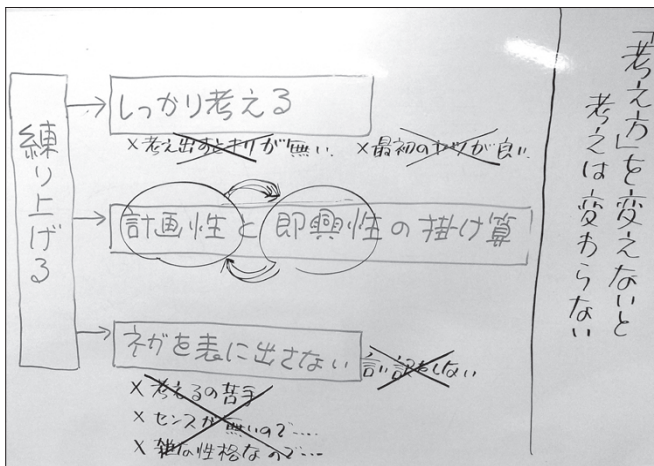 「考え方」を変えないと
考えは変わらない
練り上げる
しっかり考える
×考え出すとキリが無い.
×最初のヤツが良い.
計画性と即興性の掛け算
ネガを表に出さない
言い訳をしない
×考えるの苦手
×センスが無いので……
×雑な性格なので……